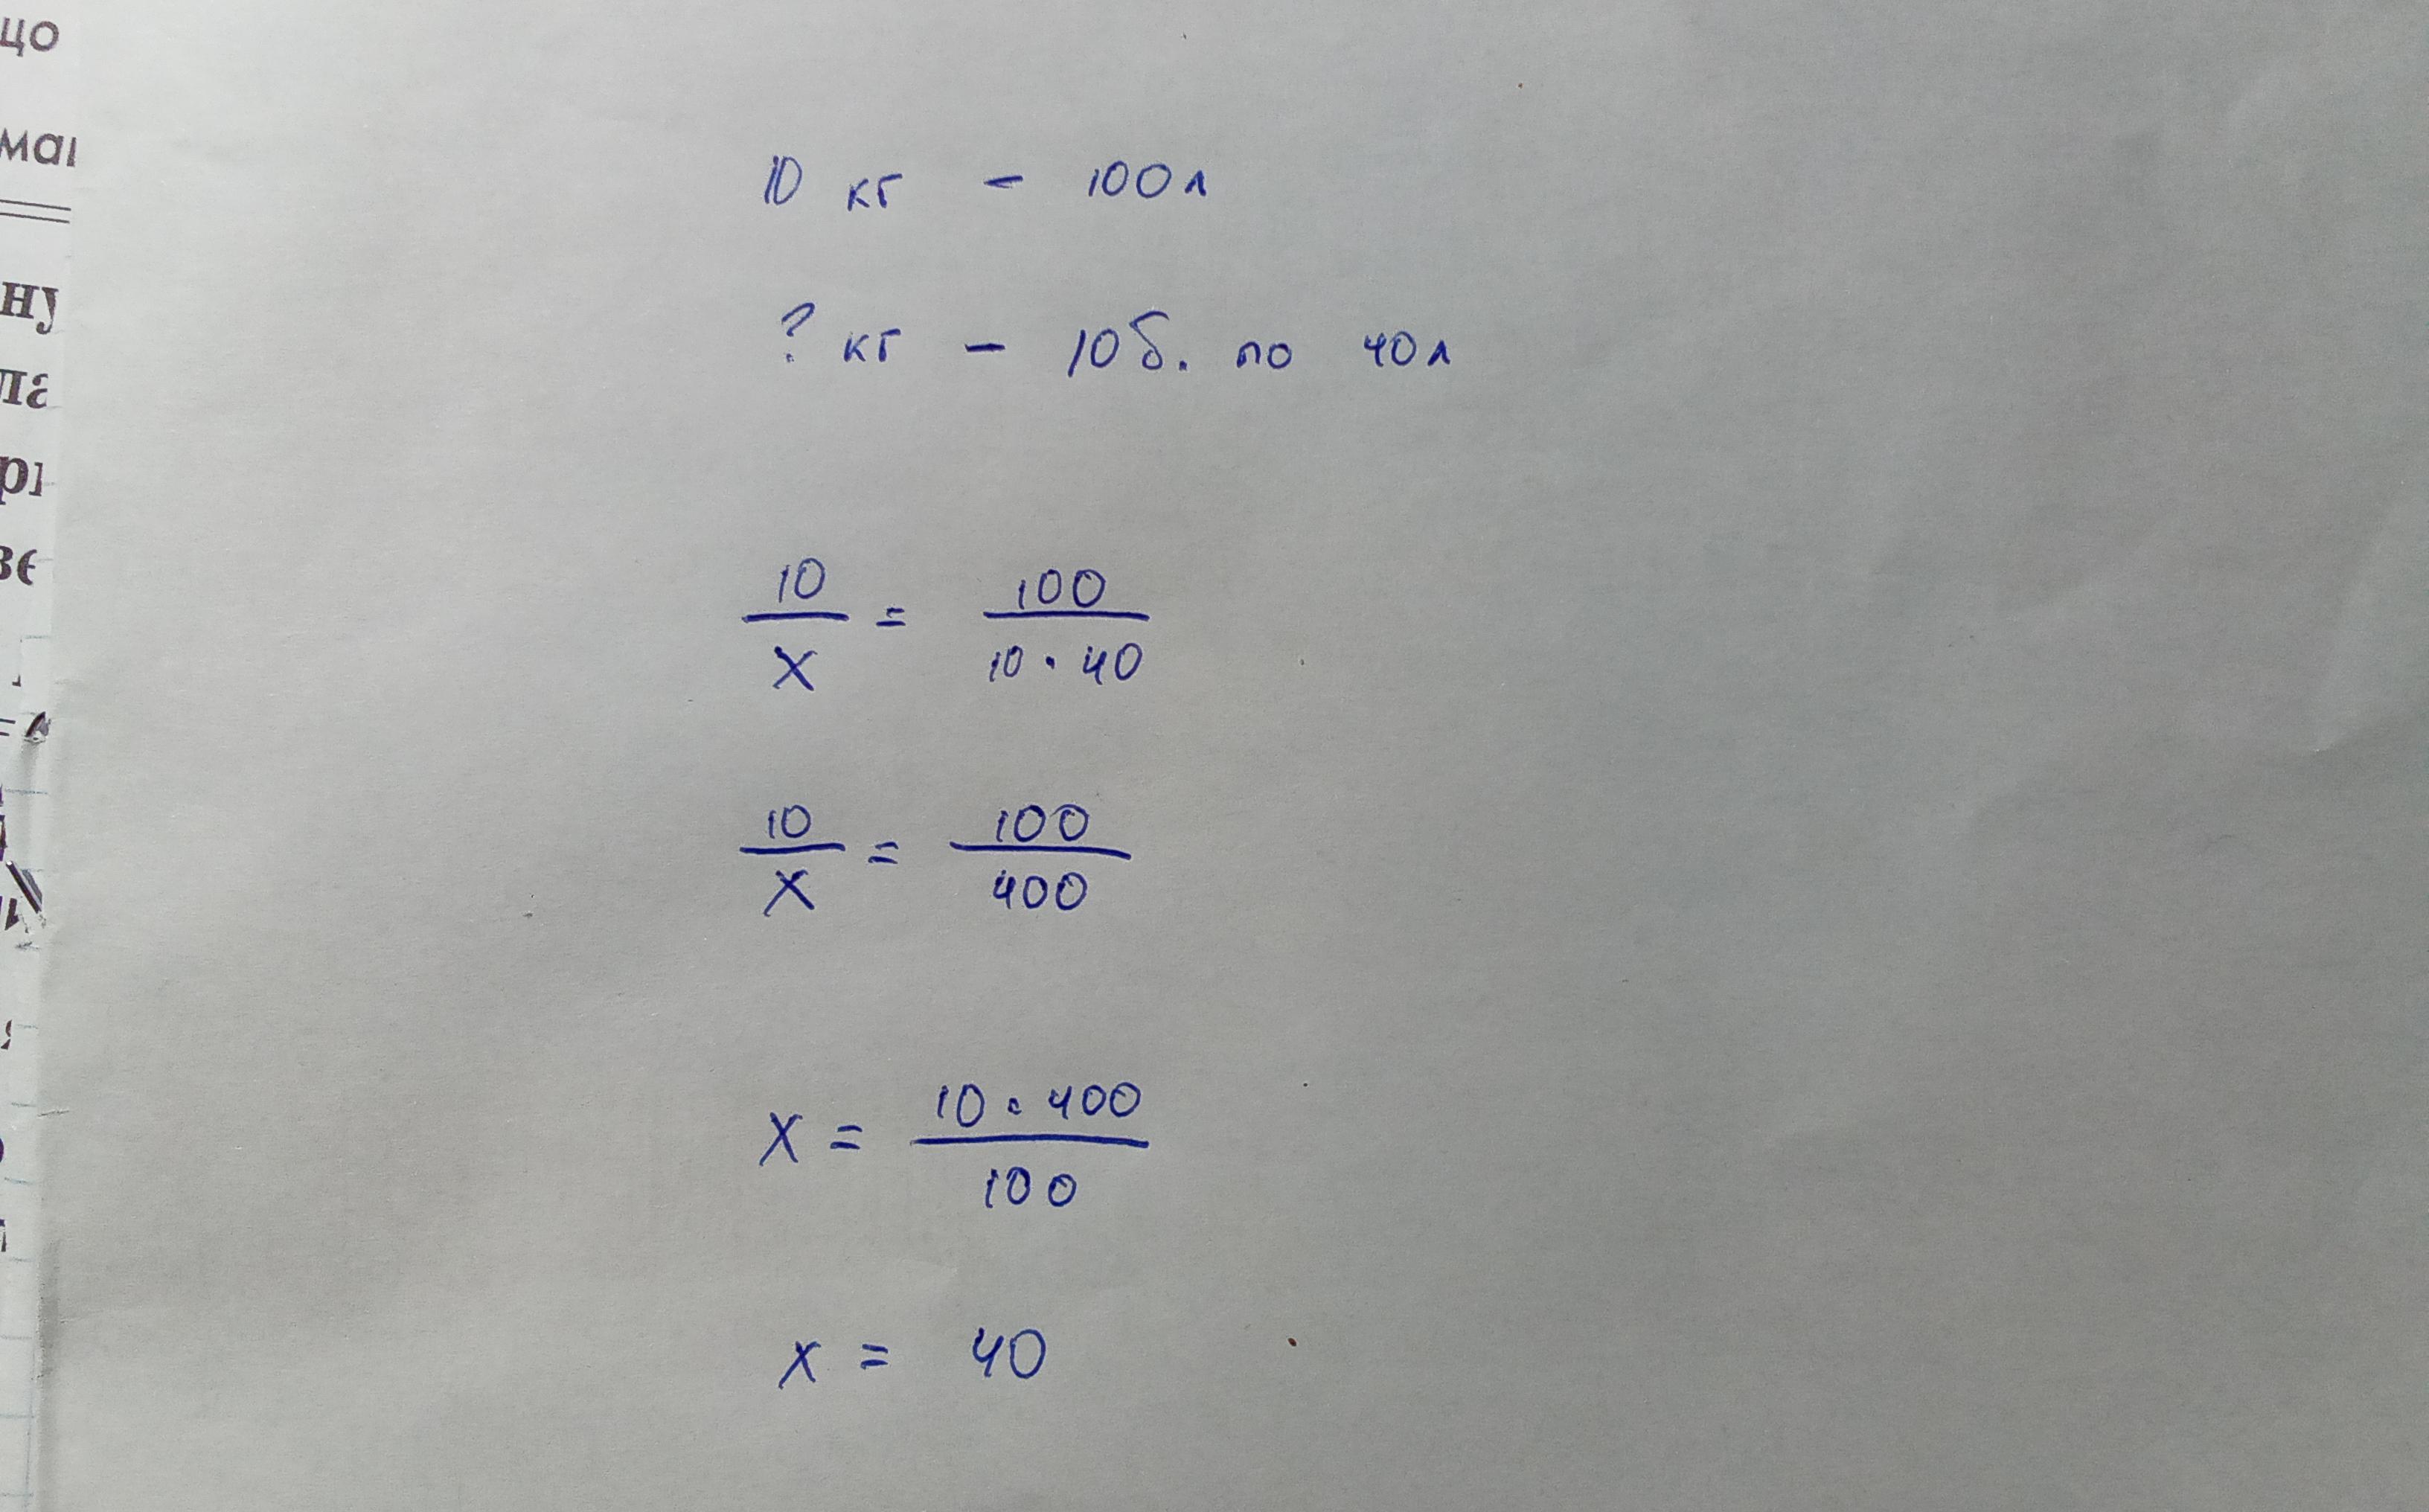 що
ну
10 кг - 100л
? кг - 10б. по 40л
10/x = 100/(10 · 40)
10/x = 100/400
x = (10 · 400)/100
x = 40